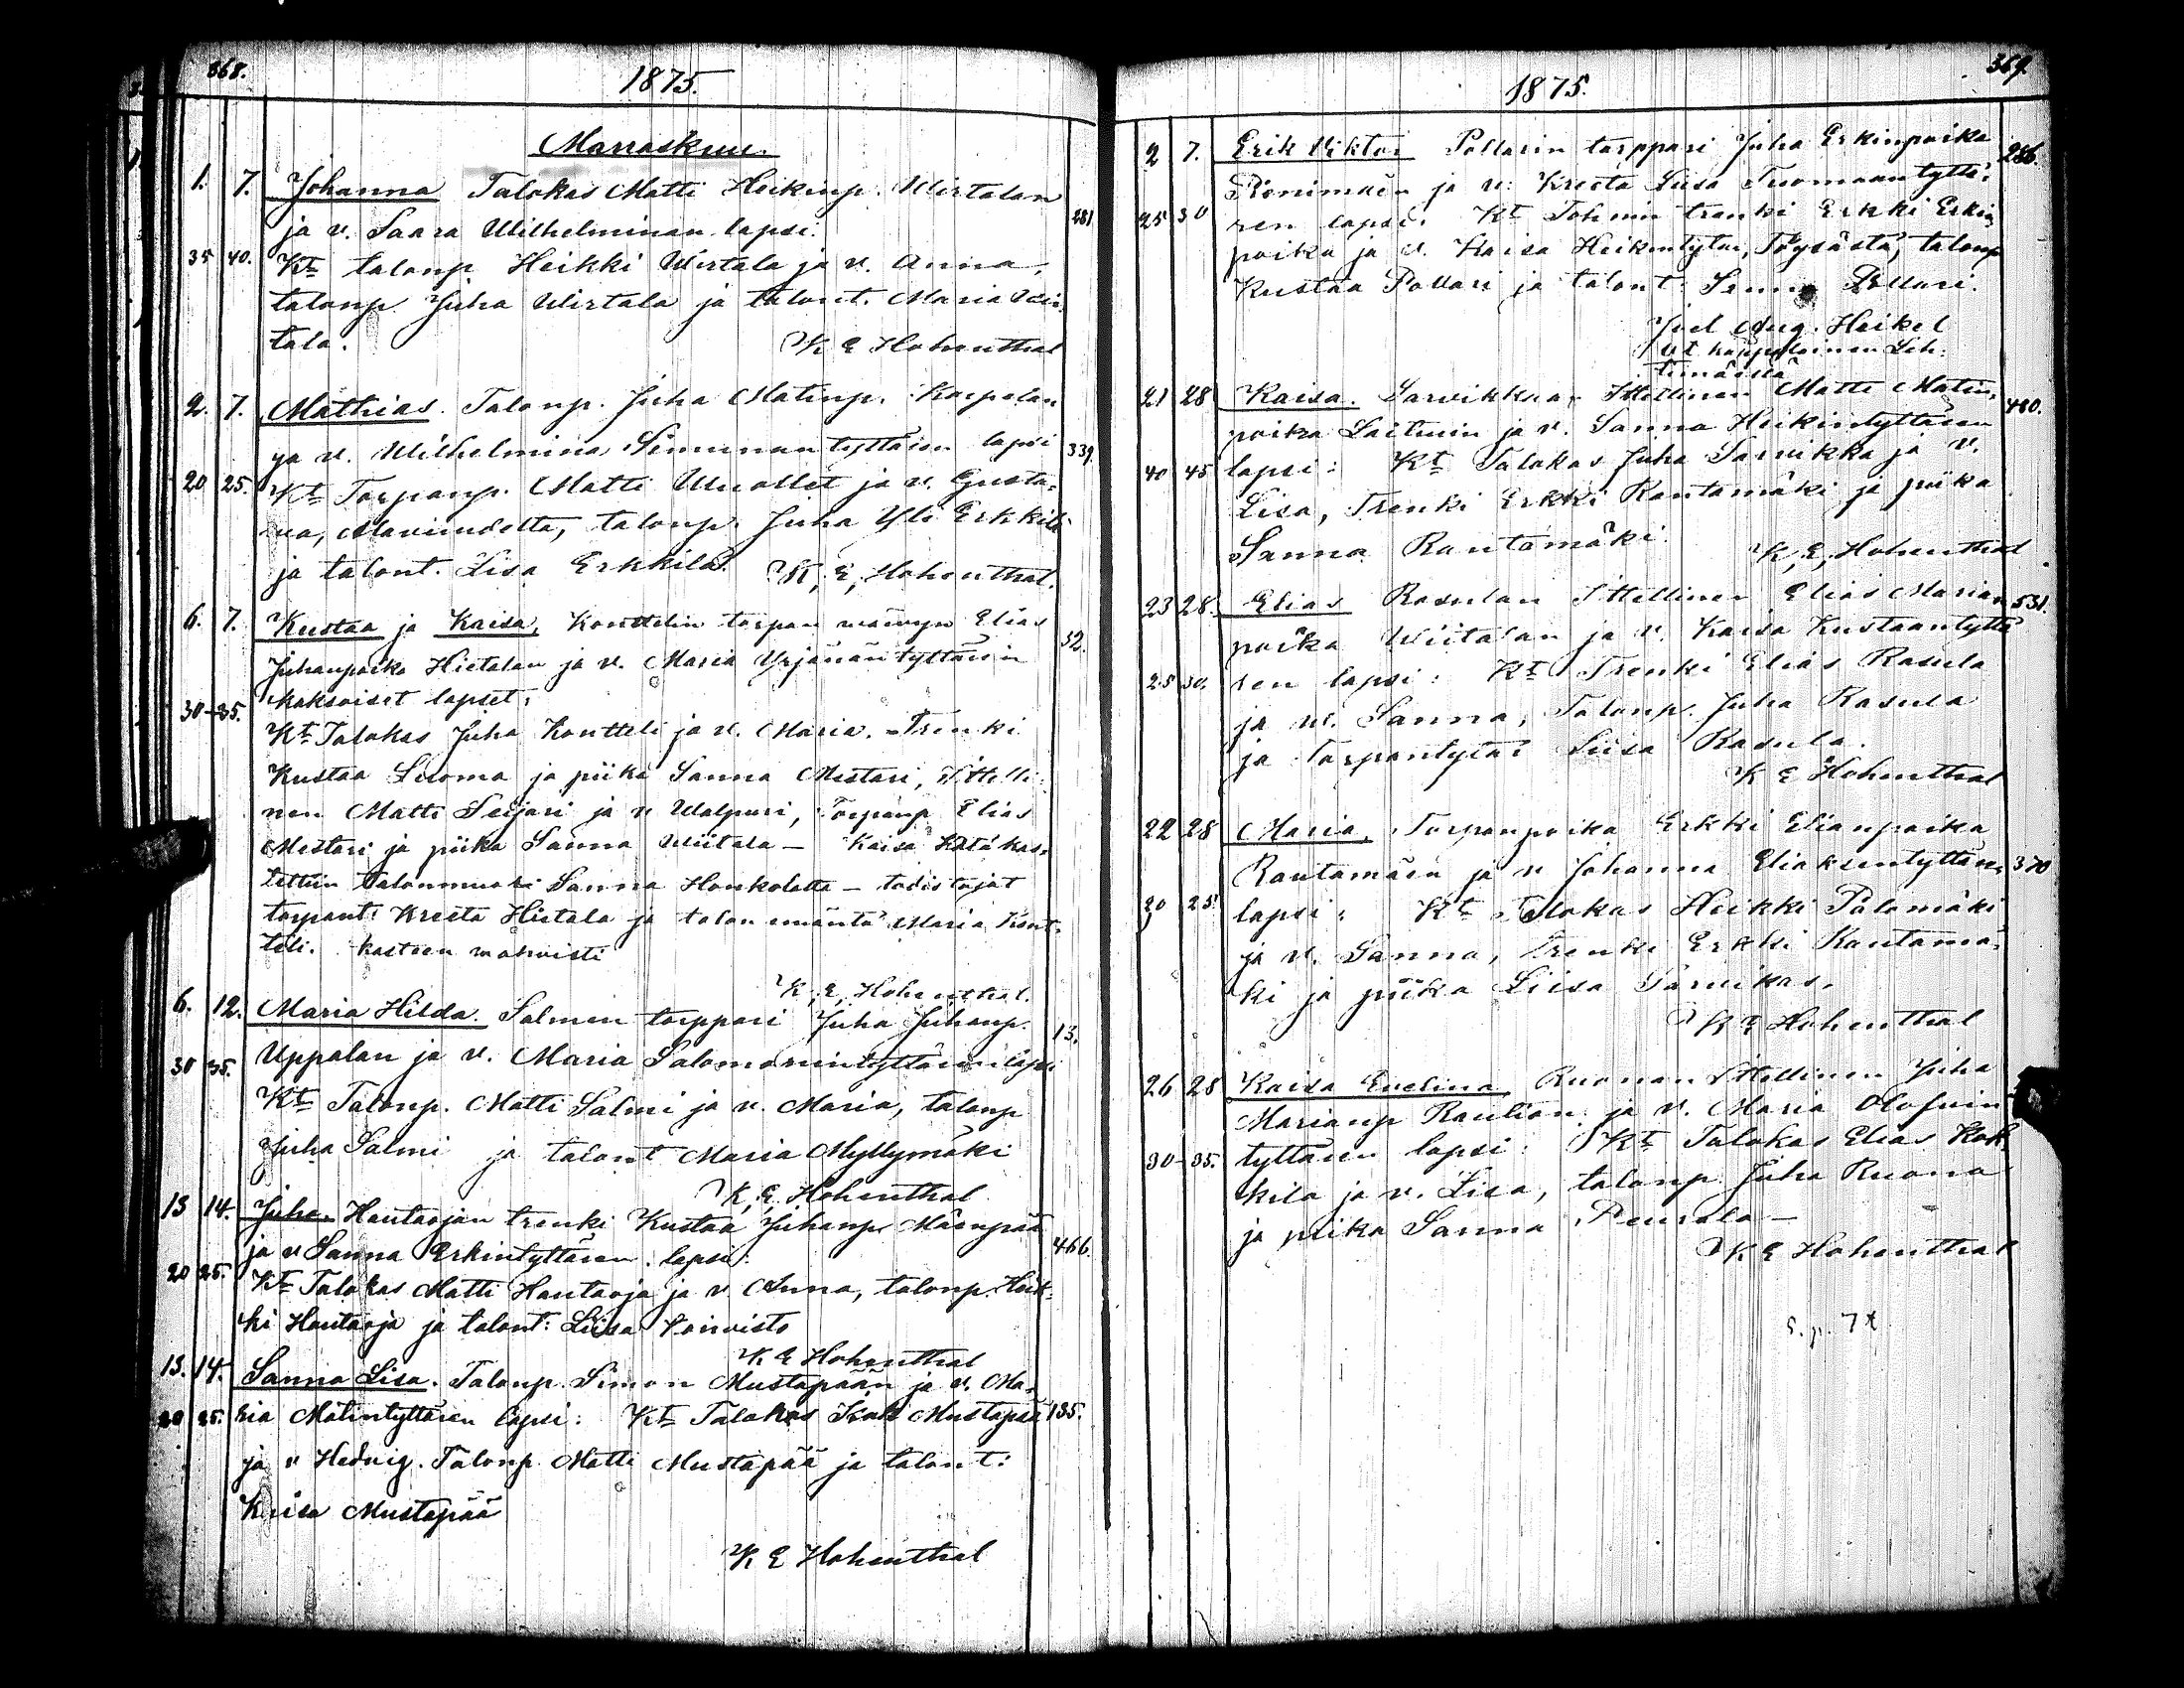 368.
1875.
Marraskuu.
1. 7. Johanna Talokas Matti Heikinp. Wirtalan
ja v. Saara Wilhelminan lapsi. 281
35 40. Kt talonp Heikki Wirtala ja v. Anna,
talonp. Juha Wirtala ja talont. Maria Wir
tala. K E Hohenthal
2. 7. Mathias. Talonp. Juha Matinp. Karpelan
ja v. Wilhelmina Simunantyttären lapsi 339
20 25. Kt Torpanp. Matti ja v. Gusta-
va, talonp. Juha Yli Erkkilä
ja talont. Lisa Erkkilä. K, E, Hohenthal.
6. 7. Kustaa ja Kaisa, Konttelin torpan wäwyn Elias
Juhanpoika Hietalan ja v. Maria Yrjänäntyttären 32.
kaksoiset lapset:
30-35. Kt Talokas Juha Kontteli ja v. Maria. Trenki
Kustaa Luoma ja piika Sanna Mestari, Ittelli-
nen Matti Seijari ja v Walpuri, Torpanp Elias
Mestari ja piika Sanna Wiitala — Kaisa Hätäkas-
tettiin talonmuori Sanna Honkolalta — todistajat
torpant: Kreeta Hietala ja talon emäntä Maria Kont-
teli. kasteen wahwisti
K, E, Hohenthal.
6. 12. Maria Hilda. Salmen torppari Juha Juhanp. 13.
30 35. Uppalan ja v. Maria Salomonintyttären lapsi
Kt Talonp. Matti Salmi ja v. Maria, talonp
Juha Salmi ja talont Maria Myllymäki
K, E, Hohenthal
13 14. Juha. Hautaojan trenki Kustaa Juhanp. Mäenpää
ja v Sanna Erkintyttären lapsi: 466.
20 25. Kt Talokas Matti Hautaoja ja v Anna, talonp. Heik-
ki Hautaoja ja talont: Liisa Koivisto
K E Hohenthal
13. 14. Sanna Lisa. Talonp. Simon Mustapään ja v. Ma-
20 25. ria Matintyttären lapsi: Kt Talokas Isak Mustapää 135.
ja v Hedvig. Talonp Matti Mustapää ja talont:
Kaisa Mustapää
K E Hohenthal
369.
1875.
2 7. Erik Viktor Pollarin torppari Juha Erkinpoika 286.
Rönimäen ja v: Kreeta Liisa Tuomaantyttä-
25 30 ren lapsi: Kt trenki Erkki Erkin
poika ja v. Kaisa Heikintytär, Töysästä, talonp
Kustaa Pollari ja talont: Sanna Pollari.
Joel Aug. Heikel
vt kappalainen Leh-
timäessä
21 28 Kaisa. Sarvikkaan Ittellinen Matti Matin- 480.
poika Laitinin ja v. Sanna Heikintyttären
40 45 lapsi: Kt Talokas Juha Sarvikka ja v.
Lisa, Trenki Erkki Rantamäki ja piika
Sanna Rantamäki.
K, E, Hohenthal
23 28. Elias Rasulan Ittellinen Elias Marian 531.
poika Wiitalan ja v. Kaisa Kustaantyttä
25 30. ren lapsi: Kt Trenki Elias Rasula
ja v. Sanna, Talonp. Juha Rasula
ja torpantytär Liisa Rasula.
K E Hohenthal
22 28 Maria, Torpanpoika Erkki Elianpoika
Rantamäen ja v Johanna Eliaksentyttären 370
20 25. lapsi: Kt Talokas Heikki Palomäki
ja v. Sanna, trenki Erkki Rantamä-
ki ja piika Liisa Sarvikas.
K E Hohenthal
26 28 Kaisa Evelina. Ruonan Ittellinen Juha
Marianp Raution ja v. Maria Olofuin
30-35. tyttären lapsi: Kt Talokas Elias Kok-
kila ja v. Lisa, talonp Juha Ruona
ja piika Sanna Peurala —
K E Hohenthal